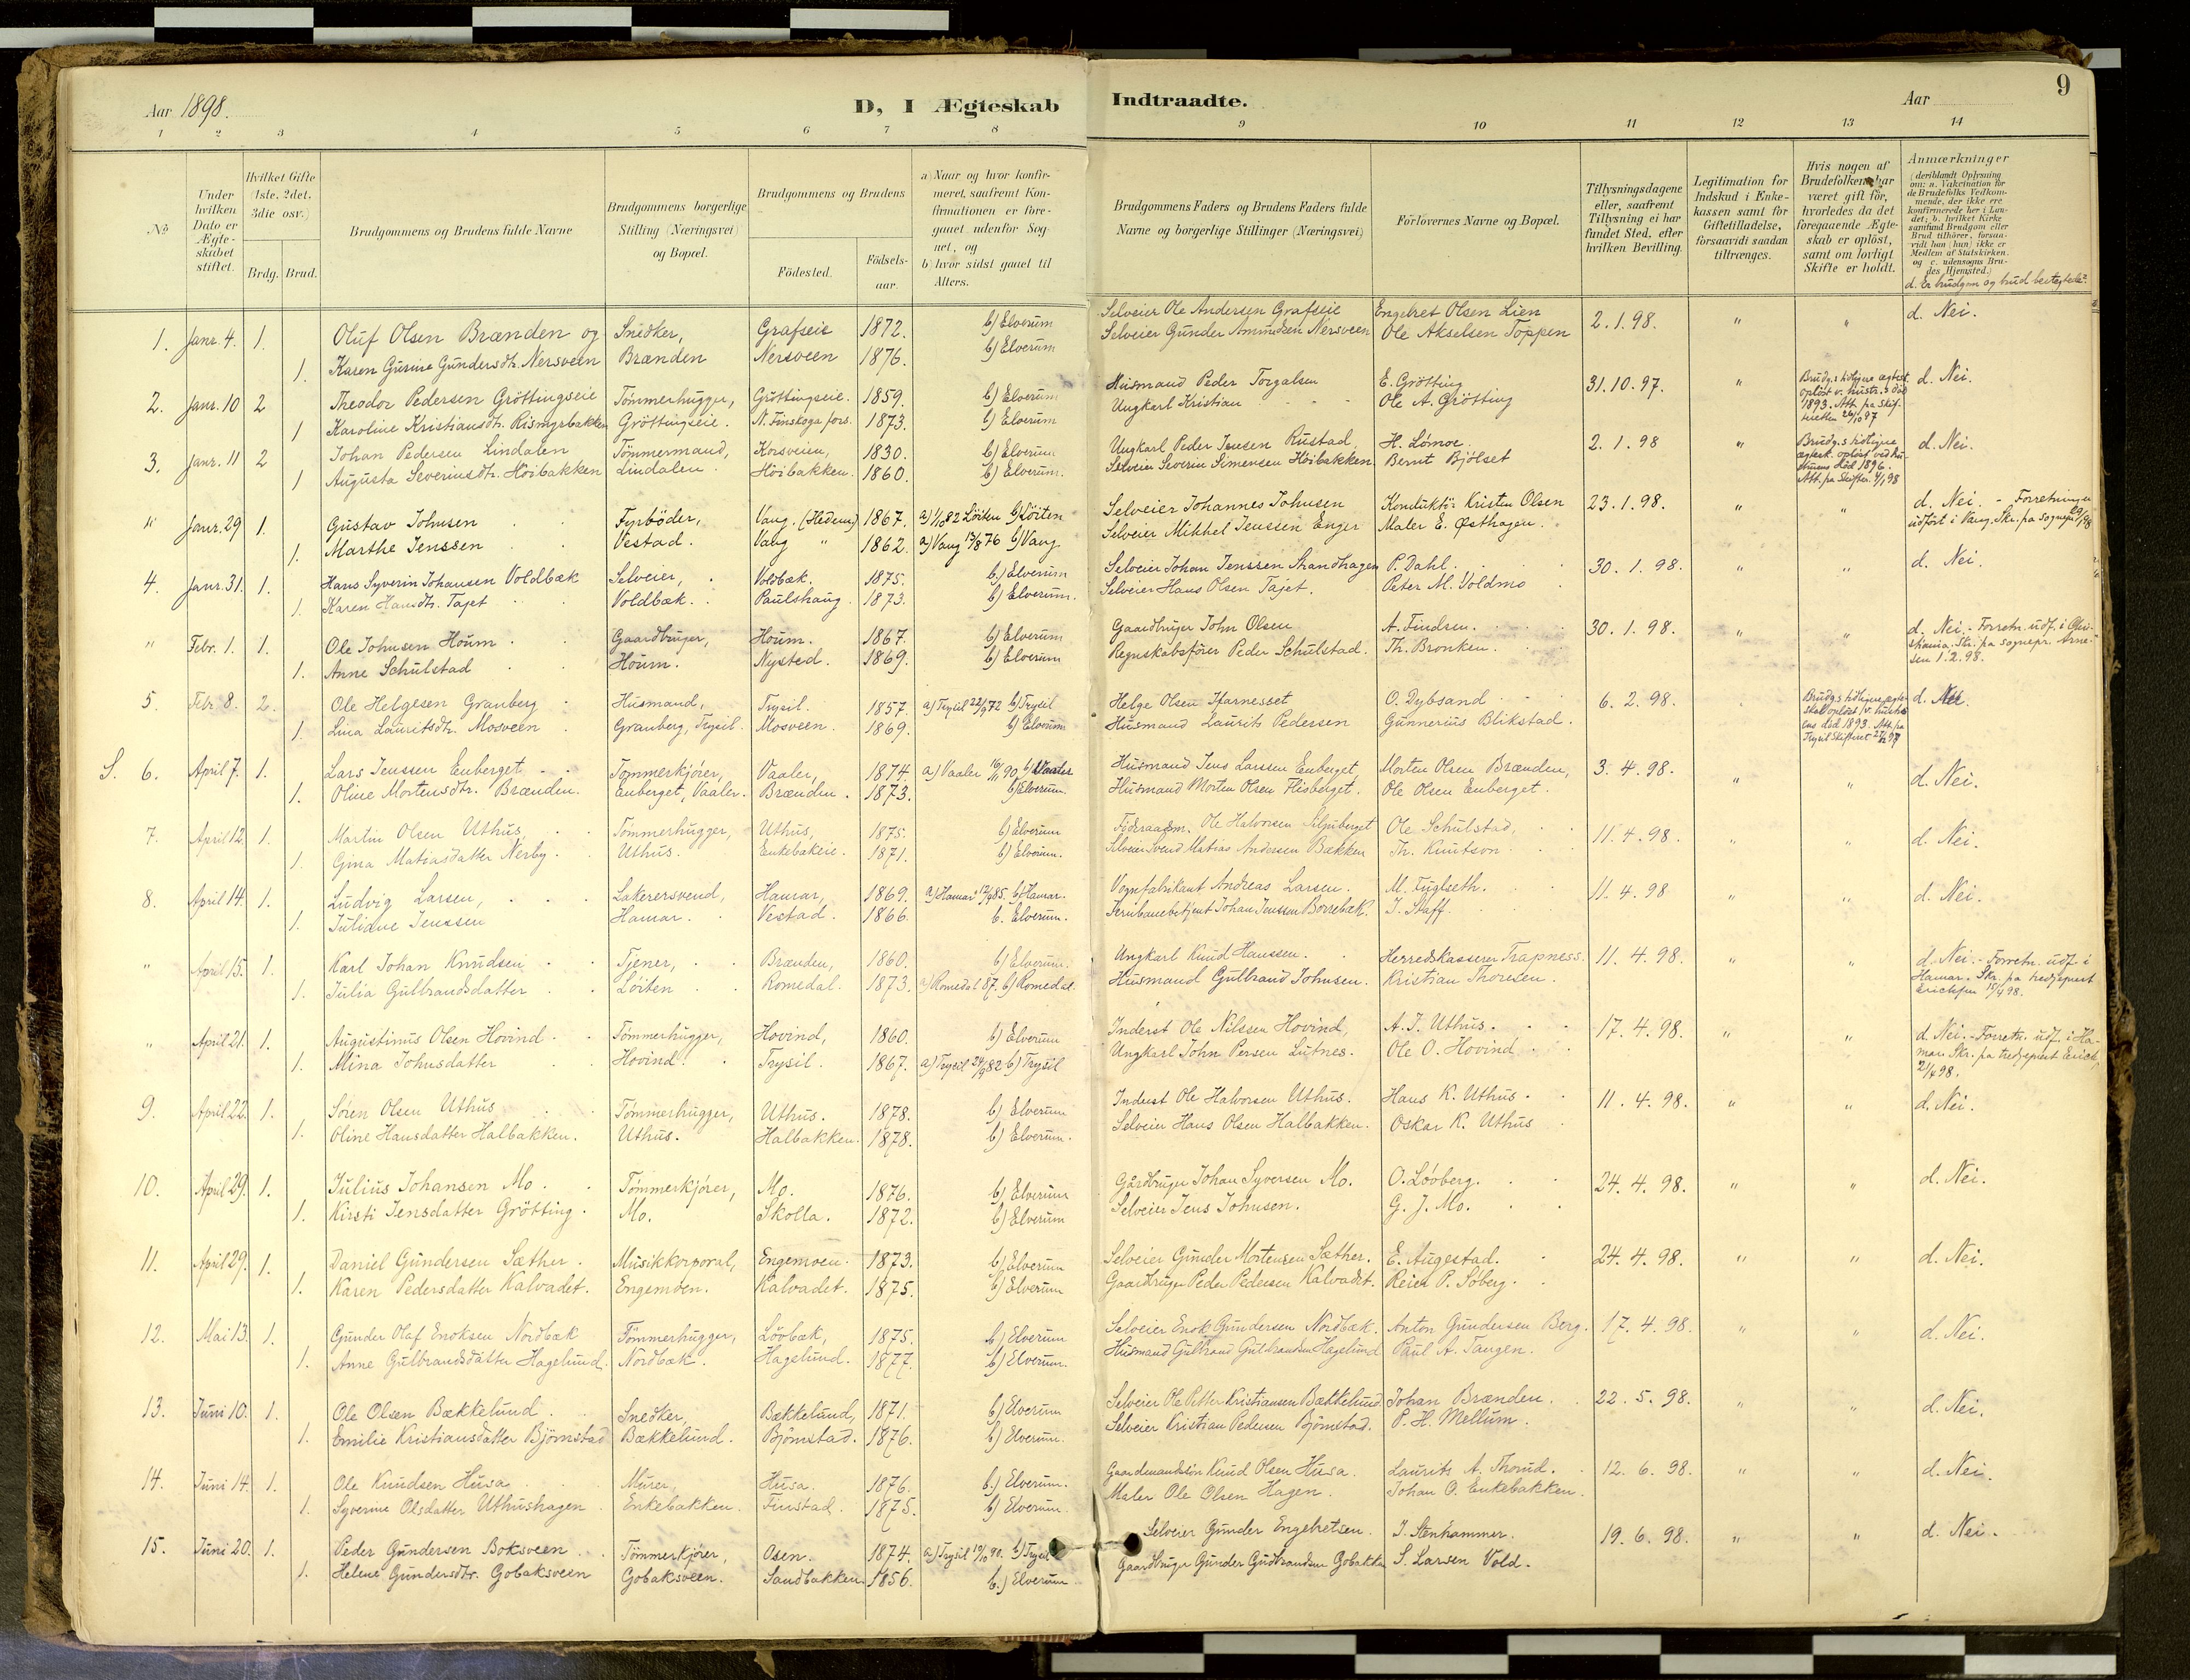 Aar 1898.
D, I Ægteskab Indtraadte.
Aar
9
1 2 3 4 5 6 7 8 9 10 11 12 13 14
№
Under hvilken Dato er Ægteskabet stiftet.
Hvilket Gifte (1ste, 2det, 3die osv.)
Brdg. Brud.
Brudgommens og Brudens fulde Navne
Brudgommens borgerlige Stilling (Næringsvei) og Bopæl.
Brudgommens og Brudens
Födested.
Födselsaar.
a) Naar og hvor konfirmeret, saafremt Konfirmationen er foregaaet udenfor Sognet, og
b) hvor sidst gaaet til Alters.
Brudgommens Faders og Brudens Faders fulde Navne og borgerlige Stillinger (Næringsvei)
Forlovernes Navne og Bopæl.
Tillysningsdagene eller, saafremt Tillysning ei har fundet Sted, efter hvilken Bevilling.
Legitimation for Indskud i Enkekassen samt for Giftetilladelse, forsaavidt saadan tiltrænges.
Hvis nogen af Brudefolkene har været gift før, hvorledes da det foregaaende Ægteskab er oplöst, samt om lovligt Skifte er holdt.
Anmærkninger
(deriblandt Oplysning om: a. Vakcination for de Brudefolks Vedkommende, der ikke ere konfirmerede her i Landet; b. hvilket Kirkesamfund Brudgom eller Brud tilhører, forsaavidt han (hun) ikke er Medlem af Statskirken. og c. udensogns Brudes Hjemsted.)
d. Er brudgom og brud beslægtede?
1. Janr. 4. 1. Oluf Olsen Brænden og Snedker, Grafseie 1872. b) Elverum Selveier Ole Andersen Grafseie Engebret Olsen Lien 2.1.98. " " d. Nei.
1. Karen Gurine Gundersdtr. Nersveen Brænden Nersveen 1876. b) Elverum Selveier Gunder Amundsen Nersveen Ole Akselsen Toppen
2. Janr. 10 2 Theodor Pedersen Gröttingseie Tömmerhugger, Gröttingseie. 1859. b) Elverum Husmand Peder Torgalsen E. Grötting 31.10.97. " Brudg.s tidligere ægtesk. oplöst v. hustr.s död 1893. Att. fra Skifteretten 26/10 97 d. Nei.
1 Karoline Kristiansdtr. Rismyrbakken Gröttingseie. N. Finskoga fors. 1873. b) Elverum Ungkarl Kristian - - - Ole A. Grötting
3. Janr. 11 2 Johan Pedersen Lindalen Tömmermand, Korsveien, 1830. b) Elverum Ungkarl Peder Jensen Rustad H. Lömoe. 2.1.98 " Brudg.s tidligere ægtesk. oplöst ved hustruens död 1896. Att. fra Skifter. 4/1 98 d. Nei.
1 Augusta Severinsdtr. Höibakken Lindalen. Höibakken. 1860. b) Elverum. Selveier Severin Simensen Höibakken. Bernt Bjölset
" Janr. 29 1. Gustav Johnsen Fyrböder, Vang. (Hedem) 1867. a) 1/10 82 Löiten b) Löiten Selveier Johannes Johnsen Konduktör Kristen Olsen 23.1.98. " " d. Nei. - Forretningen udfört i Vang. Skr. fra sognepr. 29/1 98
1. Marthe Jenssen Vestad. Vang " 1862. a) Vang 13/8 76 b) Vang Selveier Mikkel Jenssen Enger Maler E. Østhagen.
4. Janr. 31. 1. Hans Syverin Johansen Voldbæk Selveier, Voldbæk. 1875. b.) Elverum Selveier Johan Jenssen Strandhagen P. Dahl. 30.1.98. " " d. Nei.
1. Karen Hansdtr. Tajet Voldbæk. Paulshaug. 1873. b) Elverum. Selveier Hans Olsen Tajet. Peter M. Voldmo
" Febr. 1. 1. Ole Johnsen Houm Gaardbruger, Houm. 1867. b) Elverum Gaardbruger John Olsen A. Findsen. 30.1.98. " " d. Nei. - Forretn. udf. i Christiania. Skr. fra sognepr. Arnesen 1.2.98.
1. Anne Schulstad Houm. Nysted. 1869. b) Elverum Regnskabsfører Peder Schulstad. Th. Bronken.
5. Febr. 8. 2. Ole Helgesen Granberg Husmand, Trysil. 1857 a) Trysil 22/9 72 b) Trysil Helge Olsen O. Dybsand 6.2.98. Brudg.s tidligere ægteskab oplöst v. hustruens död 1893. Att. fra Trysil Skifteret 97 d. Nei.
1. Lina Lauritsdtr. Mosveen Granberg, Trysil. Mosveen. 1869. b) Elverum Husmand Laurits Pedersen Gunnerius Blikstad.
S. 6. April 7. 1. Lars Jenssen Enberget Tømmerkjører, Vaaler, 1874. a) Vaaler 16/11 90, b) Vaaler Husmand Jens Larssen Enberget Morten Olsen Brænden, 3.4.98. " " d. Nei.
1. Oline Mortensdtr. Brænden. Enberget, Vaaler. Brænden. 1873. b) Elverum. Husmand Morten Olsen Flisberget. Ole Olsen Enberget.
7. April 12. 1. Martin Olsen Uthus, Tømmerhugger, Uthus, 1875. b) Elverum Föderaadsm. Ole Halvorsen Siljuberget Ole Schulstad, 11.4.98. " " d. Nei.
1. Gina Matiasdatter Nerby. Uthus. Enkebakeie. 1871. b) Elverum. Selveier Svend Matias Andersen Bakken Th. Knutson
8. April 14. 1. Ludvig Larsen, Lakerersvend, Hamar, 1869. a) Hamar 12/4 85. b) Hamar. Vognfabrikant Andreas Larsen. M. Fuglseth. 11.4.98 " " d. Nei.
1. Juliane Jenssen Hamar. Vestad. 1866. b. Elverum. Jernbanebetjent Johan Jenssen Borrebæk. J. Staff.
" April 15. 1. Karl Johan Knudsen Tjener, Brænden, 1860. b) Elverum. Ungkarl Knud Hanssen. Herredskasserer Trapness. 11.4.98. " " d. Nei. - Forretn. udf. i Hamar. Skr. fra tredjeprest Ericksen 15/4 98.
1. Julia Gulbrandsdatter Löiten Romedal. 1873. a) Romedal 87. b) Romedal. Husmand Gulbrand Johnsen. Kristian Thoresen.
" April 21. 1. Augustinus Olsen Hovind Tømmerhugger, Hovind, 1860. b) Elverum Inderst Ole Nilssen Hovind, A. J. Uthus. 17.4.98. " " d. Nei. - Forretn. udf. i Hamar. Skr. fra tredjeprest Erick. 21/4 98.
1. Mina Johnsdatter Hovind. Trysil. 1867. a) Trysil 24/9 82 b) Trysil Ungkarl John Persen Lutnes. Ole O. Hovind
9. April 22. 1. Sören Olsen Uthus Tømmerhugger, Uthus. 1878. b) Elverum Inderst Ole Halvorsen Uthus. Hans K. Uthus. 11.4.98. " " d. Nei.
1. Oline Hansdatter Halbakken. Uthus. Halbakken. 1878. b) Elverum. Selveier Hans Olsen Halbakken. Oskar K. Uthus
10. April 29. 1. Julius Johansen Mo. Tømmerkjører, Mo. 1876. b) Elverum Gårdbruger Johan Syversen Mo. O. Lööberg. 24.4.98. " " d. Nei.
1. Kirsti Jensdatter Grötting. Mo. Skolla. 1872. b) Elverum Selveier Jens Johnsen. G. J. Mo.
11. April 29. 1. Daniel Gundersen Sæther. Musikkorporal, Engemoen. 1873. b) Elverum Selveier Gunder Mortensen Sæther. E. Augestad. 24.4.98. " " d. Nei.
1. Karen Pedersdatter Kalvadet. Engemoen. Kalvadet. 1875. b) Elverum Gaardbruger Peder Pedersen Kalvadet. Reier P. Söberg.
12. Mai 13. 1. Gunder Olaf Enoksen Nordbæk Tømmerhugger, Lövbæk, 1875. b) Elverum Selveier Enok Gundersen Nordbæk. Anton Gundersen Berg. 17.4.98. " " d. Nei.
1. Anne Gulbrandsdatter Hagelund. Nordbæk. Hagelund. 1877. b) Elverum. Husmand Gulbrand Gulbrandsen Hagelund Paul A. Tangen.
13. Juni 10. 1. Ole Olsen Bækkelund Snedker, Bækkelund, 1871. b) Elverum Selveier Ole Petter Kristiansen Bækkelund Johan Brænden. 22.5.98. " " d. Nei.
1. Emilie Kristiansdatter Björnstad Bækkelund. Björnstad. 1876. b) Elverum. Selveier Kristian Pedersen Björnstad. P. H. Mellum.
14. Juni 14. 1. Ole Knudsen Husa Murer, Husa. 1876. b.) Elverum. Gaardmandssön Knud Olsen Husa. Laurits A. Thorud. 12.6.98. " " d. Nei.
1. Syverine Olsdatter Uthushagen Enkebakken. Finstad. 1875. b) Elverum. Maler Ole Olsen Hagen. Johan O. Enkebakken.
15. Juni 20. 1. Peder Gundersen Boksveen Tømmerkjører, Osen. 1874. a) Trysil 19/10 90. b) Trysil Selveier Gunder Engebretsen. J. Stenhammer. 19.6.98. " " d. Nei.
1. Helene Gundersdtr. Gobaksveen Gobaksveen. Sandbakken. 1856. b.) Elverum Gaardbruger Gunder Gudbrandsen Gobakken S. Larsen Vold.